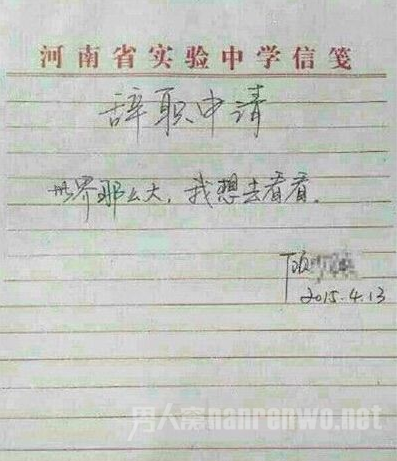 河南省实验中学信笺
辞职申请
世界那么大，我想去看看。
顾
2015.4.13
男人窝nanrenwo.net